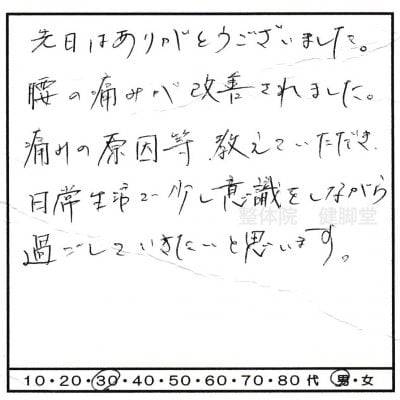 先日はありがとうございました。
腰の痛みが改善されました。
痛みの原因等教えていただき、
日常生活で少し意識をしながら
整体院 健脚堂
過ごしていきたいと思います。
10・20・30・40・50・60・70・80代 男・女